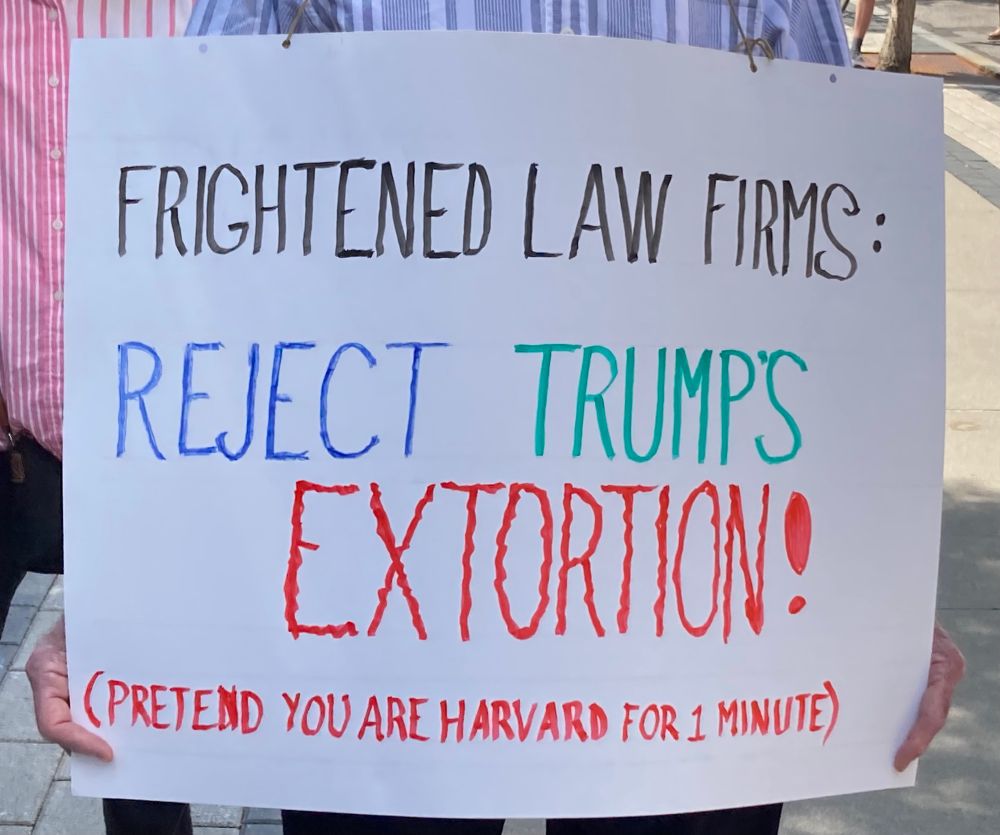 FRIGHTENED LAW FIRMS:
REJECT TRUMP'S
EXTORTION!
(PRETEND YOU ARE HARVARD FOR 1 MINUTE)